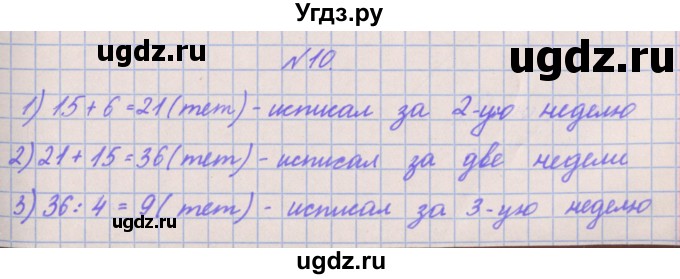 Угдз.ру
ugdz.ru
ugdz.ru
№10.
1) 15 + 6 = 21 (тет) - исписал за 2-ую неделю
2) 21 + 15 = 36 (тет) - исписал за две недели
3) 36 : 4 = 9 (тет) - исписал за 3-ую неделю
ugdz.ru
ugdz.ru
ugdz.ru